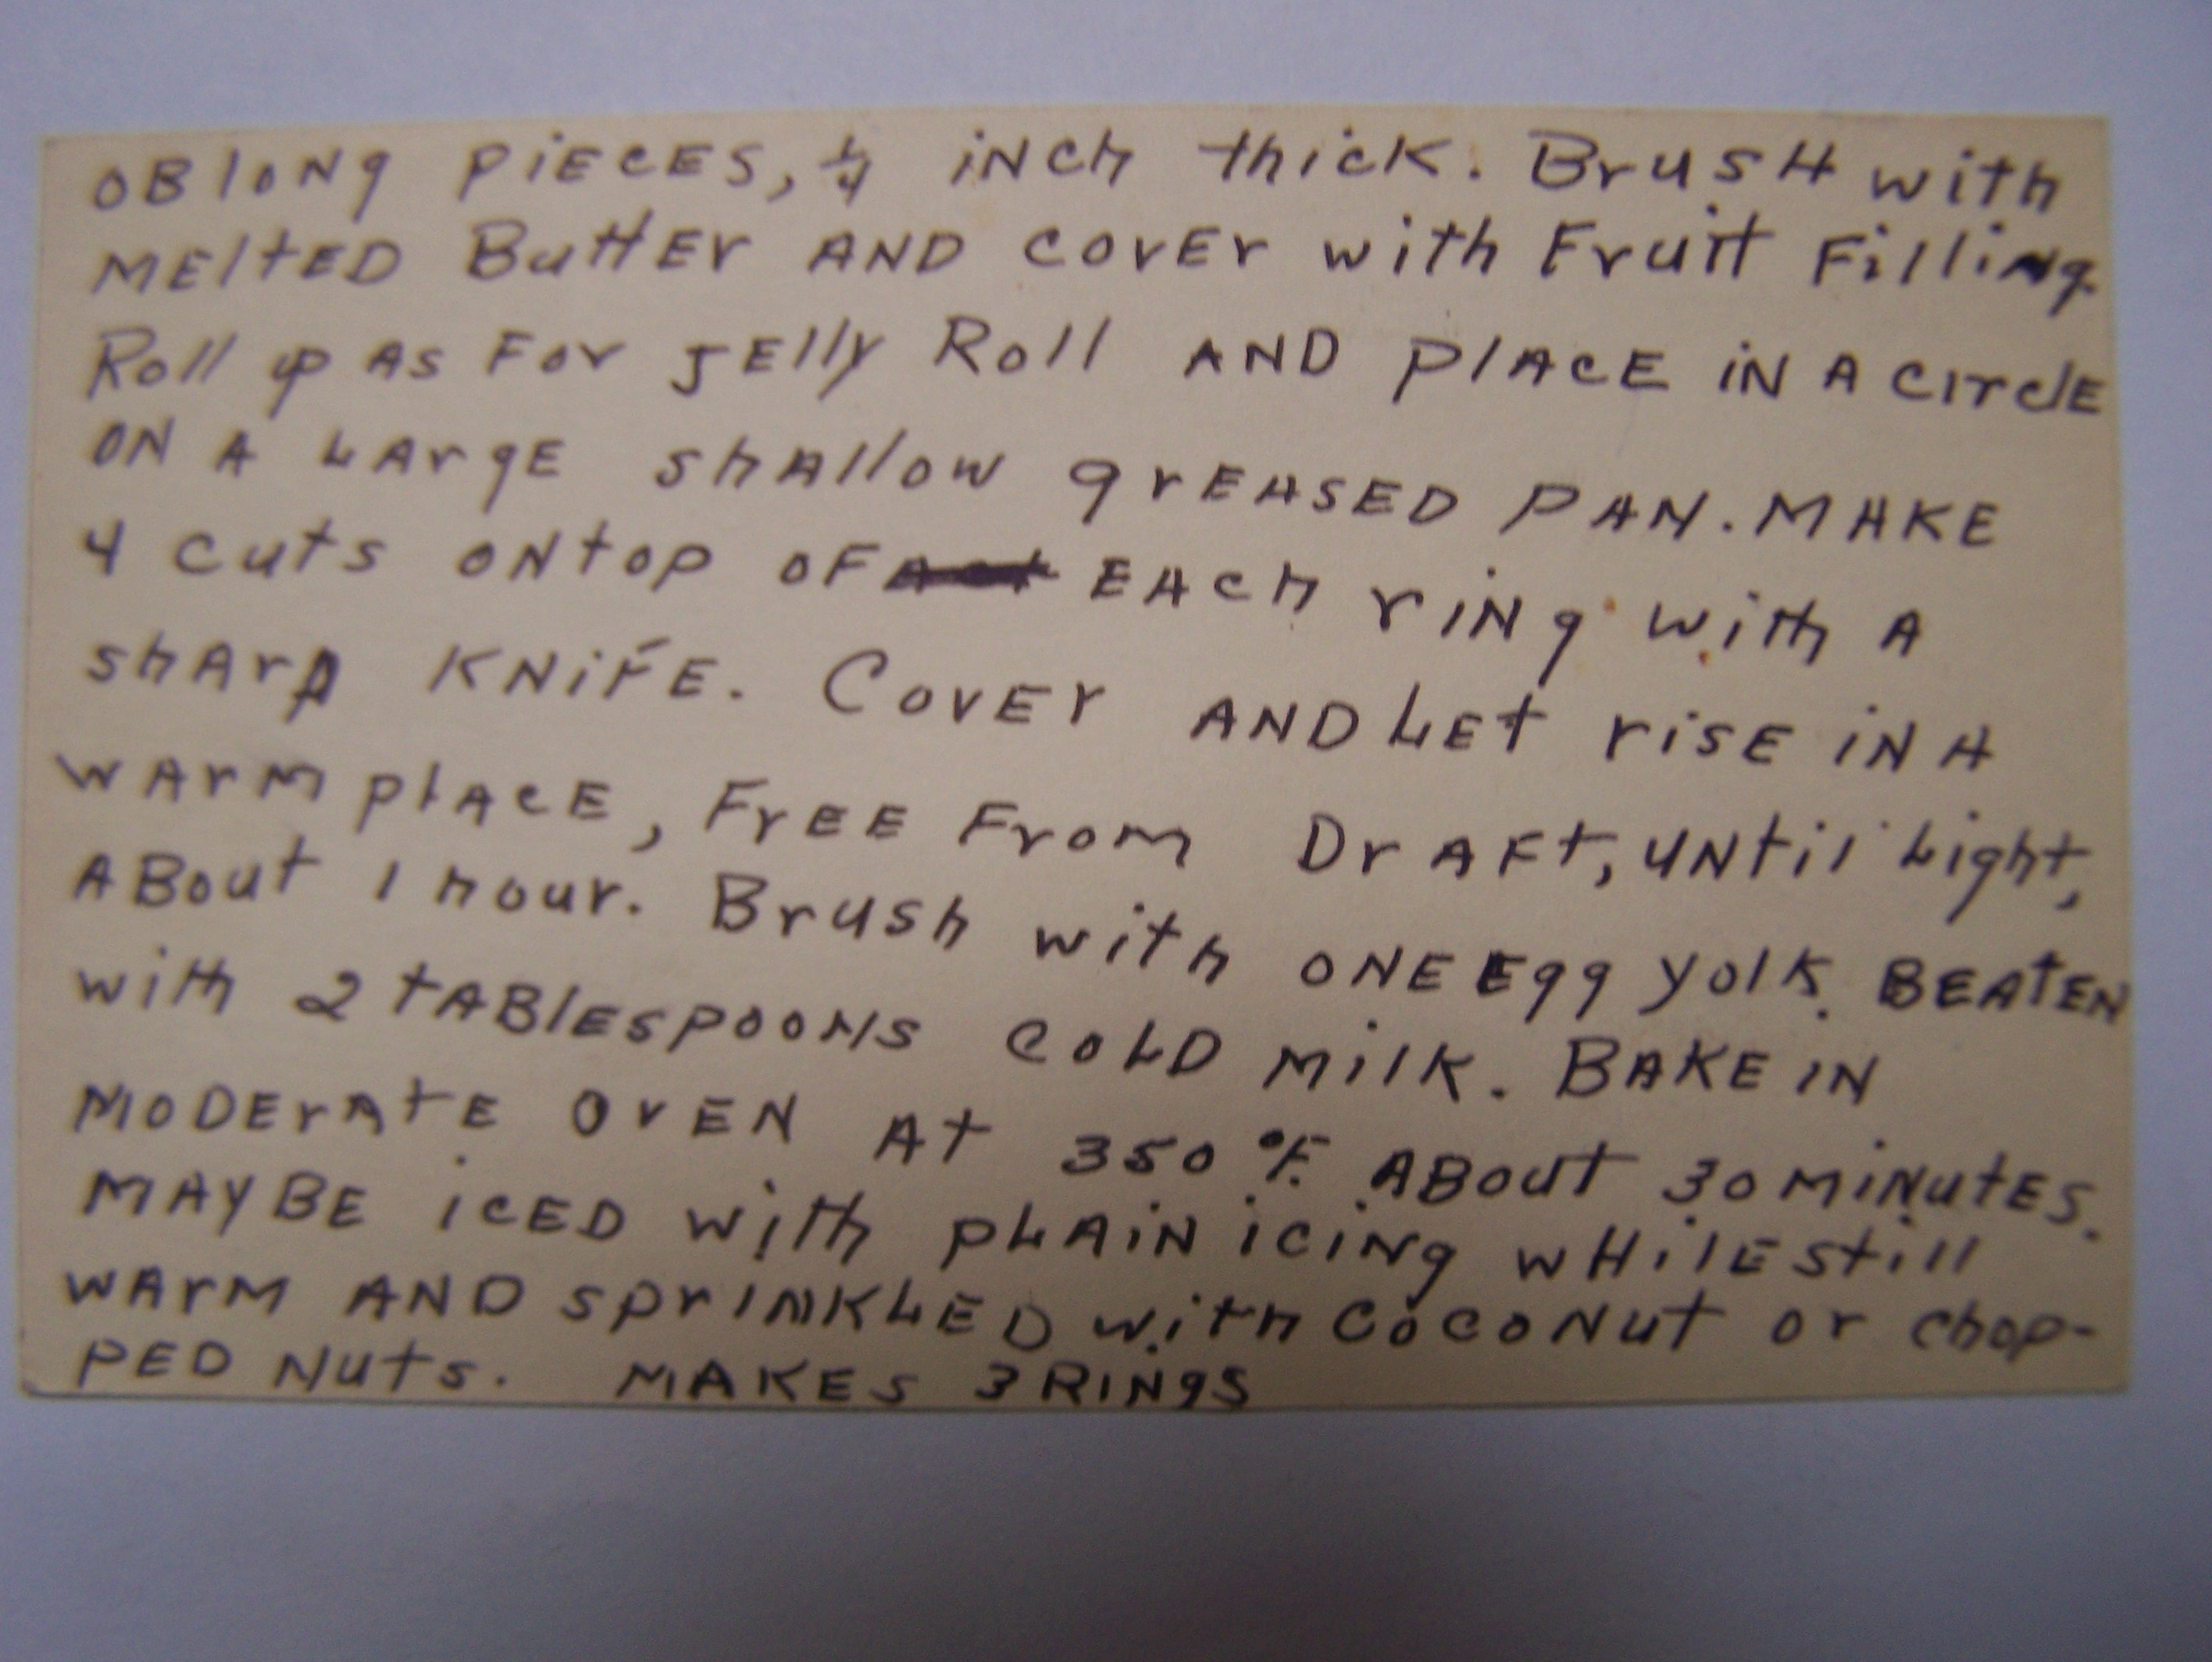 OBlong PiECES, 1/4 iNch thick. BrUSH with
MEltED ButtEr AND COVEr with Fruit Filling.
Roll up AS For JElly Roll AND PlACE iN A CirclE
ON A LArgE shAllow grEASED PAN. MAKE
4 cuts ONtop OF EACh riNg with A
shArp KNiFE. CovEr AND LEt risE iN A
wArm plACE, FrEE From DrAFt, UNtil Light,
ABout 1 hour. Brush with ONE Egg yolk BEATEN
with 2 tABlESpooNs COLD milk. BAKE IN
MODErAtE OVEN At 350 °F. ABout 30 MiNutES.
MAY BE iCED with PLAiN iciNg wHilE still
wArm AND sprINKLED with CoCoNut or chop-
PED Nuts. MAKES 3 RiNgS